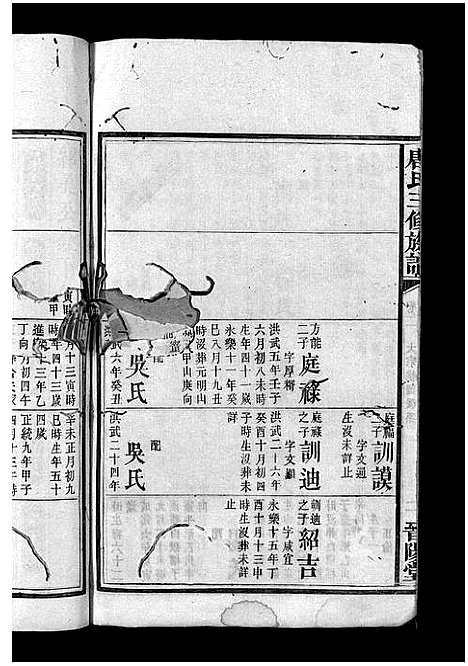 唐氏三修族譜
庭福
二子訓謨
字文通
生沒未詳止
方能
二子庭祿
字厚穧
洪武五年壬子
六月初八未時
生年四十一歲
永樂十一年癸
巳八月十九丑
時沒葬元明山
甲山庚向
吳氏
洪武六年癸丑
庭祿
之子訓迪
字文顯
洪武二十六年
癸酉十月初四
子時生沒葬未
詳
配
吳氏
洪武二十四年
訓迪
之子紹吉
字咸宜
永樂十五年丁
酉十月十三申
時生沒葬未詳
止
晉陽堂
月十三寅時
年四十三歲
三年乙
丁向
辛未正月初九
巳時生年五十
四歲
正統九年甲子
四月十三午時